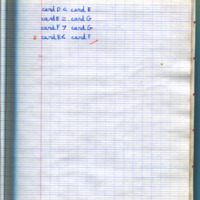 card D < card E
card E = card G
card F > card G
card E < card F